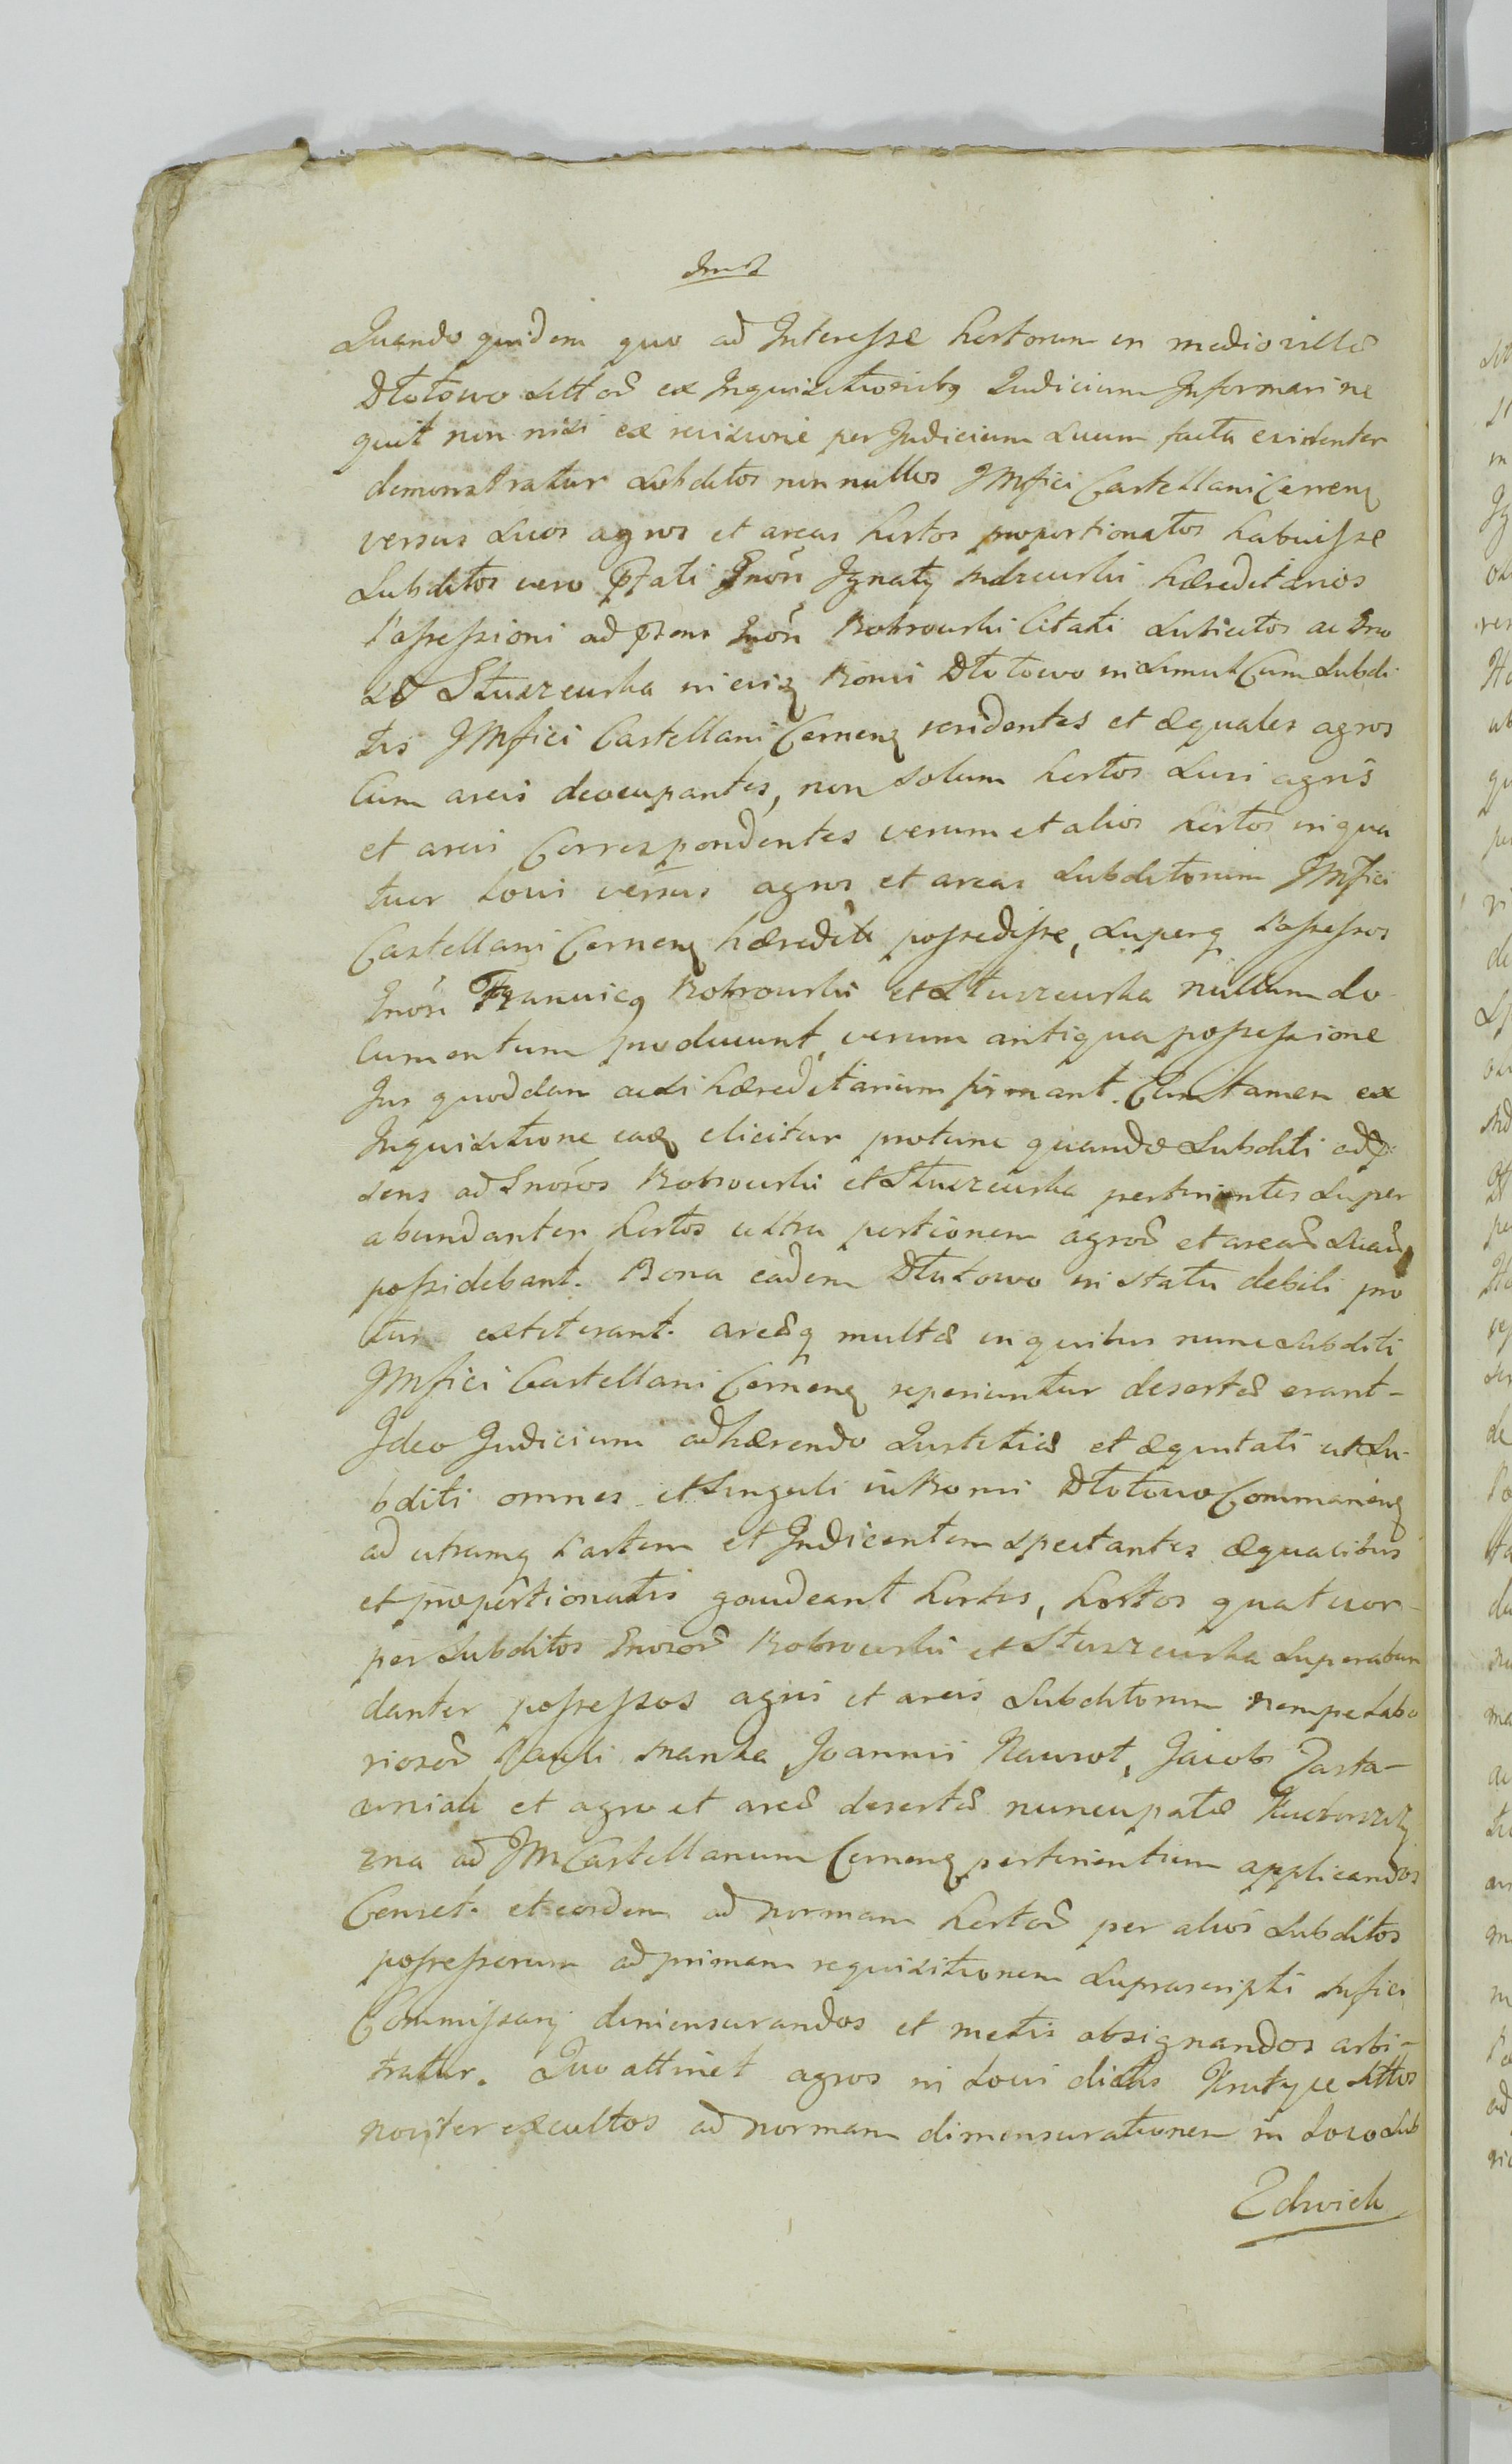 Quando quidem quo ad Interesse hortorum in medio villæ
Dłotowo sitt ex Inquisitionibq Judicium Informari ne
quit non nisi ex revisione per Judicium suum facta evidenter
demonstratur subditos non nullos JMfici Castellani Cerneng
versus suos agros et areas hortos proportionatos habuisse
Subditos vero Pfati Gnosi Ignatij hæreditarios
Possessioni ad psens Gnosi Bobrowski Citati subiectos ac
Słuszewska in eisq Bonis Dłotowo in simul Cum Subdi
tis JMfici Castellani Cerneng residentes et æquales agros
Cum areis deoccupantes, non solum hortos suis agris
et areis Correspondentes verum et alios hortos in qua
tuor locis versus agros et areas subditorum JMfici
Castellani Cerneng hæredit possedisse, superq Possessos
Gnosi Francisq Bobrowski et Słuszewska nullum do
cumentum producunt, verum antiqua possessione
Jus quoddam acsi hæreditarium firmant. Cum tamen ex
Inquisitione eaq elicitur protunc quando Subditi adp
sens ad Gnosos Bobrowski et Słuszewska pertinentes super
abundanter hortos ultra portionem agrorum et arearum suarum
possidebant. Bona eadem Dłutowo in statu debili pro
tunc extiterant. areæq multæ in quibus nunc subditi
JMfici Castellani Cerneng reperiuntur desertæ erant-
Ideo Judicium adhærendo Justitiæ et æquitati ut su-
bditi omnes et singuli in Bonis Dłotowo Commaneng
ad utramq Partem et Indicentem spectantes æqualibus
et proportionatis gaudeant hortis, hortos quatuor-
per subditos Gnosor Bobrowski et Słuszewska superabun
danter possessos agris et areis subditorum nempe Labo
riosor Pauli Joannis Nawrot, Jacobi Pasta-
et agro et areæ desertæ nuncupatæ
zna ad JM Castellanum Cerneng pertinentium applicandos
Censet. et eosdem ad normam hortor per alios subditos
possessorum ad primam requisitionem suprascripti
Commissarij dimensurandos et metis absignandos arbi-
tratur. Quo attinet agros in loci dictis Krutyce sittos
noviter excultos ad normam dimensurationem in loco sub